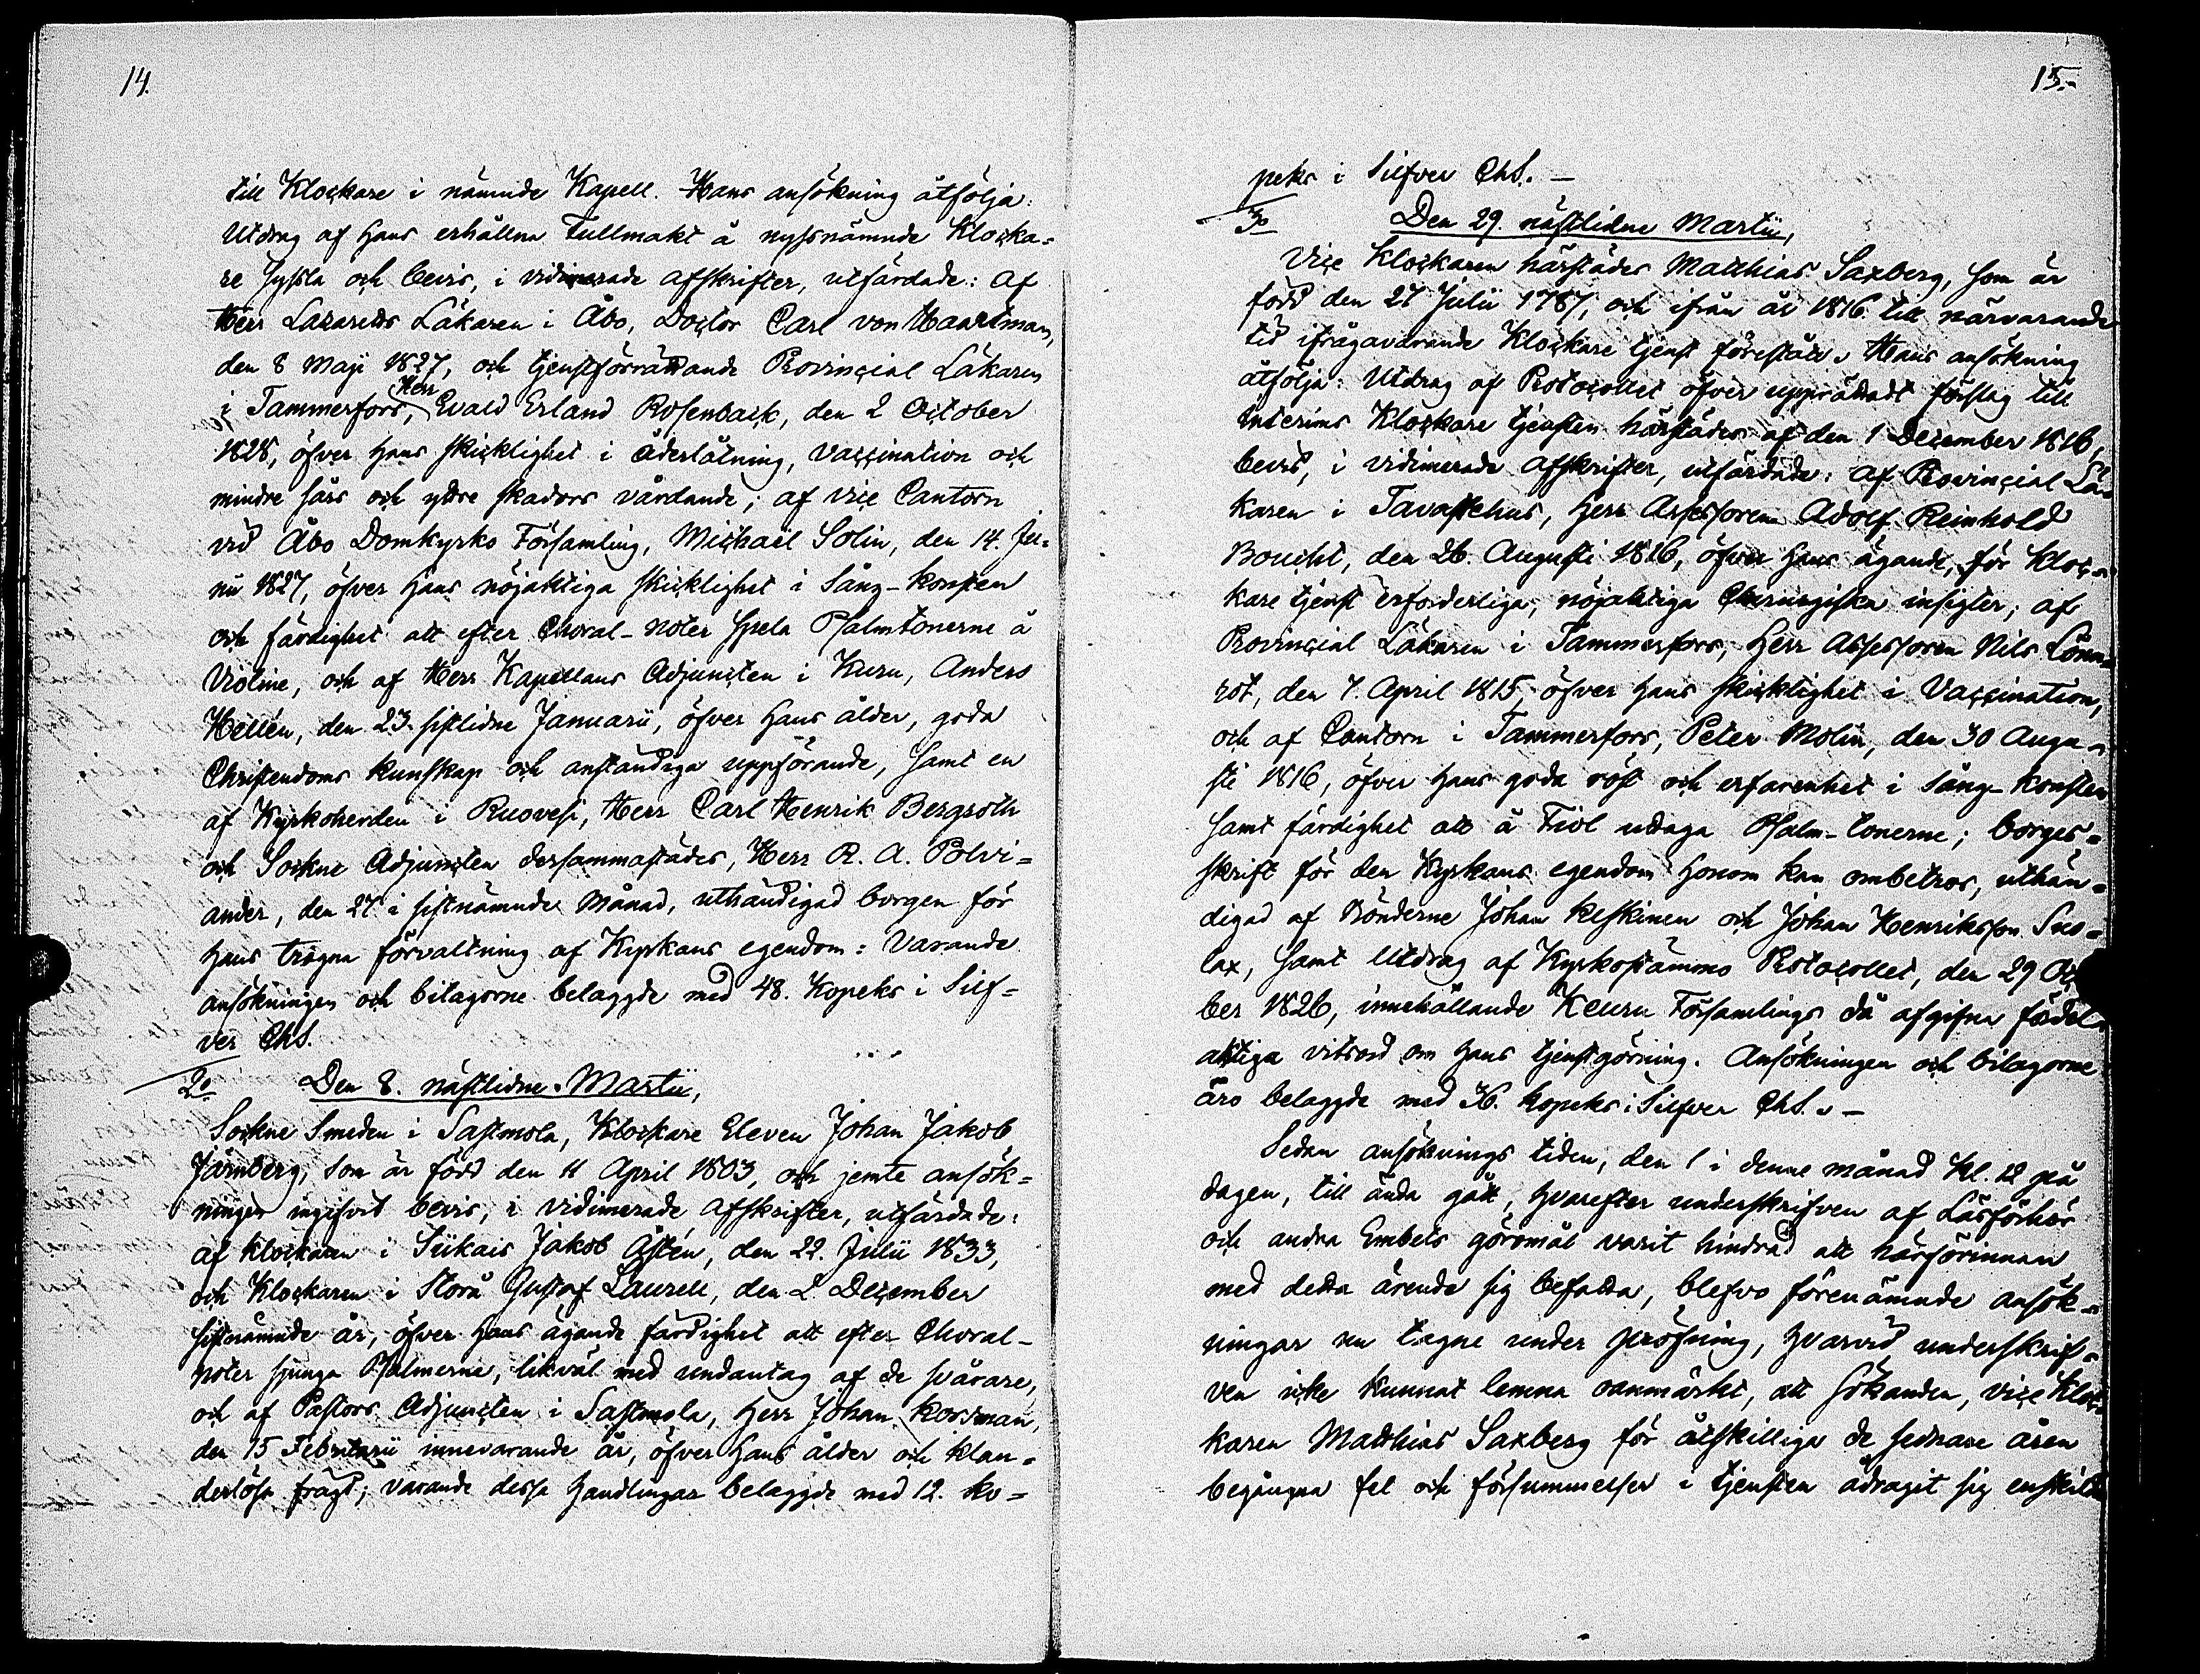 14.
till Klockare i nämnde Kapell. Hans ansökning åtfölja:
Utdrag af hans erhållna Fullmakt å nyssnämnde Klocka-
re syssla och bevis, i vidimerade afskrifter, utfärdade: af
Herr Lazaretts Läkaren i Åbo, Doctor Carl von Haartman,
den 8 Maji 1827, och tjenstförrättande Provincial Läkaren
i Tammerfors, Herr Evald Erland Rosenback, den 2 October
1828, öfver hans skicklighet i åderlåtning, vaccination och
mindre sårs och yttre skadors vårdande; af vice Cantorn
vid Åbo Domkyrko Församling, Michaël Solin, den 14. Ju-
nii 1827, öfver hans nöjaktiga skicklighet i Sång-konsten
och färdighet att efter Choral-noter spela Psalmtonerne å
Violine, och af Herr Kapellans Adjuncten i Kuru, Anders
Hellén, den 23. sistlidne Januarii, öfver hans ålder, goda
Christendoms kunskap och anständiga uppförande, samt en
af Kyrkoherden i Ruovesi, Herr Carl Henrik Bergroth
och Sockne Adjuncten dersammastädes, Herr R. A. Polvi-
ander, den 27 i sistnämnde Månad, uthändigad borgen för
hans trogna förvaltning af Kyrkans egendom: Varande
ansökningen och bilagorne belaggde med 48. Kopeks i Silf-
ver Ch S.
2o Den 8. nästlidne Martii,
Sockne Smeden i Sastmola, Klockare Eleven Johan Jakob
Järnberg, som är född den 11 April 1803, och jemte ansök-
ningen ingifvit bevis, i vidimerade afskrifter, utfärdade:
af Klockaren i Siikais Jakob Astén, den 22. Julii 1833,
och Klockaren i Storå Gustaf Laurell, den 2. December
sistnämnde år, öfver hans ägande färdighet att efter Choral-
noter sjunga Psalmerne, likväl med undantag af de svårare,
och af Pastors Adjuncten i Sastmola, Herr Johan Korsman,
den 15 Februarii innevarande år, öfver hans ålder och klan-
derlösa frägd; varande dessa handlingar belaggde med 12. Ko-
15.
peks i Silfver Ch S. –
3o Den 29. nästlidne Martii,
Vice Klockaren härstädes Matthias Saxberg, som är
född den 27 Julii 1787, och ifrån år 1816 till närvarande
tid ifrågavarande Klockare tjenst förestått. Hans ansökning
åtfölja: Utdrag af Protocollet öfver upprättadt förslag till
Interims Klockare tjensten härstädes af den 1 December 1816,
bevis, i vidimerade afskrifter, utfärdade: af Provincial Lä-
karen i Tavastehus, Herr Assessoren Adolf Reinhold
Boucht, den 26. Augusti 1816, öfver hans ägande, för Kloc-
kare tjenst erforderliga, nöjaktiga Chirurgiska insigter; af
Provincial Läkaren i Tammerfors, Herr Assessoren Nils Lönn-
rot, den 7. April 1815, öfver hans skicklighet i Vaccination,
och af Cantorn i Tammerfors, Peter Molin, den 30 Augu-
sti 1816, öfver hans goda röst och erfarenhet i Sång-konsten
samt färdighet att å Fiol uttaga Psalm-tonerne; borges-
skrift för den Kyrkans egendom honom kan ombetros, uthän-
digad af Bönderne Johan Keskinen och Johan Henriksson Suo-
lax, samt Utdrag af Kyrkostämmo Protocollet, den 29 Oc
ber 1826, innehållande Keuru Församlings då afgifna fördel-
aktiga vitsord om hans tjenstgörning. Ansökningen och bilagorne
äro belaggde med 36. Kopeks i Silfver Ch S. –
Sedan ansöknings tiden, den 1 i denne månad Kl. 12 på
dagen, till ända gått, hvarefter underskrifven af Läsförhör
och andra Embets göromål varit hindrad att härförinnan
med detta ärende sig befatta, blefvo förenämnde ansök-
ningar nu tagne under pröfning, hvarvid underskrif-
ven icke kunnat lemna oanmärkt, att Sökanden, vice Kloc-
karen Matthias Saxberg för åtskilliga de sednare åren
begångna fel och försummelser i tjensten ådragit sig enskilda